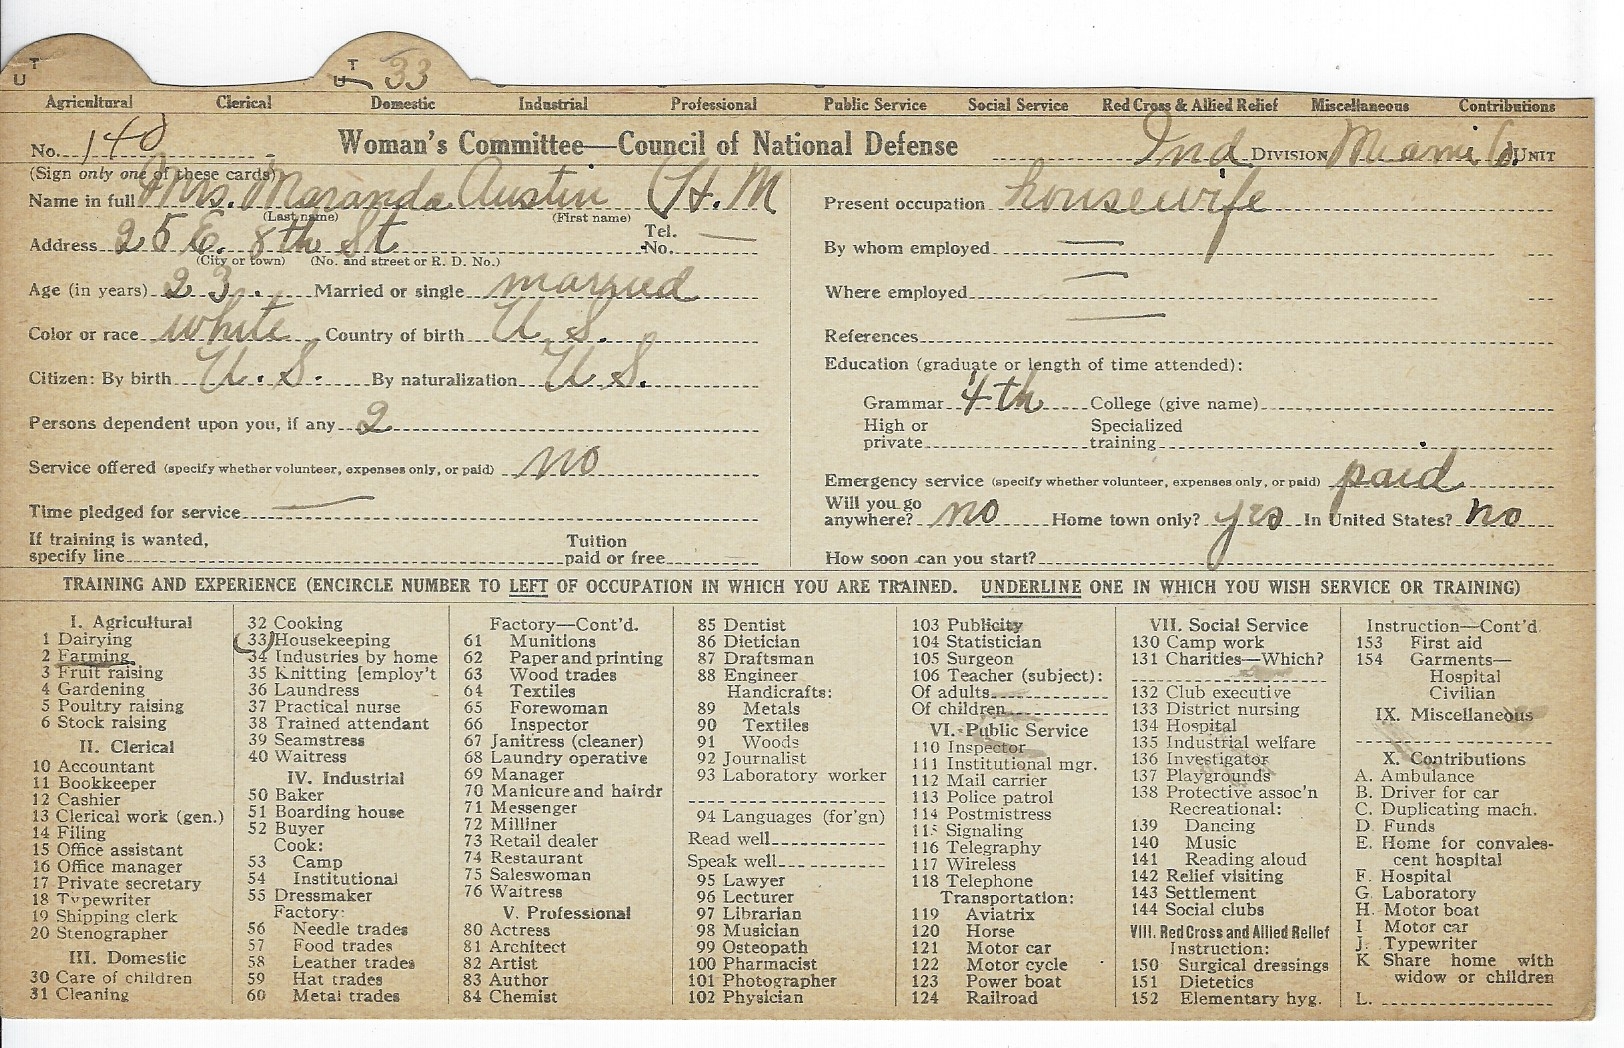 T
U
T
U 33
Agricultural Clerical Domestic Industrial Professional Public Service Social Service Red Cross & Allied Relief Miscellaneous Contributions
No. 140 Woman's Committee—Council of National Defense Ind DIVISION Miami Co. UNIT
(Sign only one of these cards)
Name in full Mrs. Maranda Austin (H. M
(Last name) (First name)
Address 25 E. 8th St Tel. No.
(City or town) (No. and street or R. D. No.)
Age (in years) 23. Married or single married
Color or race white Country of birth U. S.
Citizen: By birth U. S. By naturalization U S.
Persons dependent upon you, if any 2
Service offered (specify whether volunteer, expenses only, or paid) no
Time pledged for service
If training is wanted, specify line Tuition paid or free
Present occupation housewife
By whom employed
Where employed
References
Education (graduate or length of time attended):
Grammar 4th College (give name)
High or private Specialized training
Emergency service (specify whether volunteer, expenses only, or paid) paid
Will you go anywhere? no Home town only? yes In United States? no
How soon can you start?
TRAINING AND EXPERIENCE (ENCIRCLE NUMBER TO LEFT OF OCCUPATION IN WHICH YOU ARE TRAINED. UNDERLINE ONE IN WHICH YOU WISH SERVICE OR TRAINING)
I. Agricultural
1 Dairying
2 Farming
3 Fruit raising
4 Gardening
5 Poultry raising
6 Stock raising
II. Clerical
10 Accountant
11 Bookkeeper
12 Cashier
13 Clerical work (gen.)
14 Filing
15 Office assistant
16 Office manager
17 Private secretary
18 Typewriter
19 Shipping clerk
20 Stenographer
III. Domestic
30 Care of children
31 Cleaning
32 Cooking
33 Housekeeping
34 Industries by home
35 Knitting [employ't
36 Laundress
37 Practical nurse
38 Trained attendant
39 Seamstress
40 Waitress
IV. Industrial
50 Baker
51 Boarding house
52 Buyer
Cook:
53 Camp
54 Institutional
55 Dressmaker
Factory:
56 Needle trades
57 Food trades
58 Leather trades
59 Hat trades
60 Metal trades
Factory—Cont'd.
61 Munitions
62 Paper and printing
63 Wood trades
64 Textiles
65 Forewoman
66 Inspector
67 Janitress (cleaner)
68 Laundry operative
69 Manager
70 Manicure and hairdr
71 Messenger
72 Milliner
73 Retail dealer
74 Restaurant
75 Saleswoman
76 Waitress
V. Professional
80 Actress
81 Architect
82 Artist
83 Author
84 Chemist
85 Dentist
86 Dietician
87 Draftsman
88 Engineer
Handicrafts:
89 Metals
90 Textiles
91 Woods
92 Journalist
93 Laboratory worker
94 Languages (for'gn)
Read well
Speak well
95 Lawyer
96 Lecturer
97 Librarian
98 Musician
99 Osteopath
100 Pharmacist
101 Photographer
102 Physician
103 Publicity
104 Statistician
105 Surgeon
106 Teacher (subject):
Of adults
Of children
VI. Public Service
110 Inspector
111 Institutional mgr.
112 Mail carrier
113 Police patrol
114 Postmistress
115 Signaling
116 Telegraphy
117 Wireless
118 Telephone
Transportation:
119 Aviatrix
120 Horse
121 Motor car
122 Motor cycle
123 Power boat
124 Railroad
VII. Social Service
130 Camp work
131 Charities—Which?
132 Club executive
133 District nursing
134 Hospital
135 Industrial welfare
136 Investigator
137 Playgrounds
138 Protective assoc'n
Recreational:
139 Dancing
140 Music
141 Reading aloud
142 Relief visiting
143 Settlement
144 Social clubs
VIII. Red Cross and Allied Relief
Instruction:
150 Surgical dressings
151 Dietetics
152 Elementary hyg.
Instruction—Cont'd
153 First aid
154 Garments—
Hospital
Civilian
IX. Miscellaneous
X. Contributions
A. Ambulance
B. Driver for car
C. Duplicating mach.
D. Funds
E. Home for convales-
cent hospital
F. Hospital
G. Laboratory
H. Motor boat
I Motor car
J. Typewriter
K Share home with
widow or children
L.